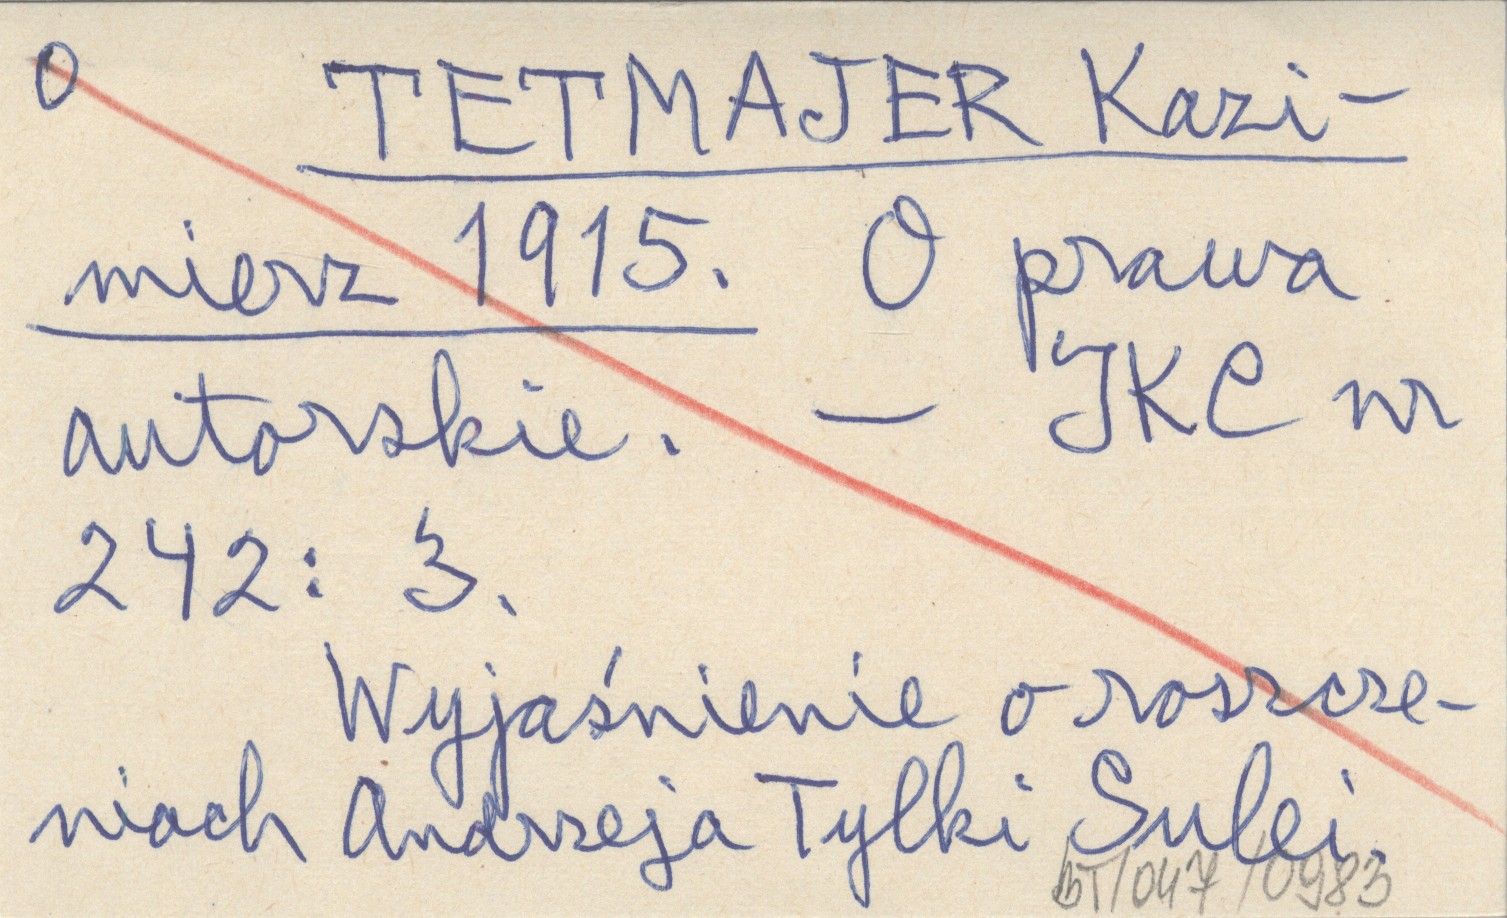 O TETMAJER Kazi-
mierz 1915. O prawa
autorskie. — IKC nr
242: 3.
Wyjaśnienie o roszcze-
niach Andrzeja Tylki Sulei.
BT/047/0983